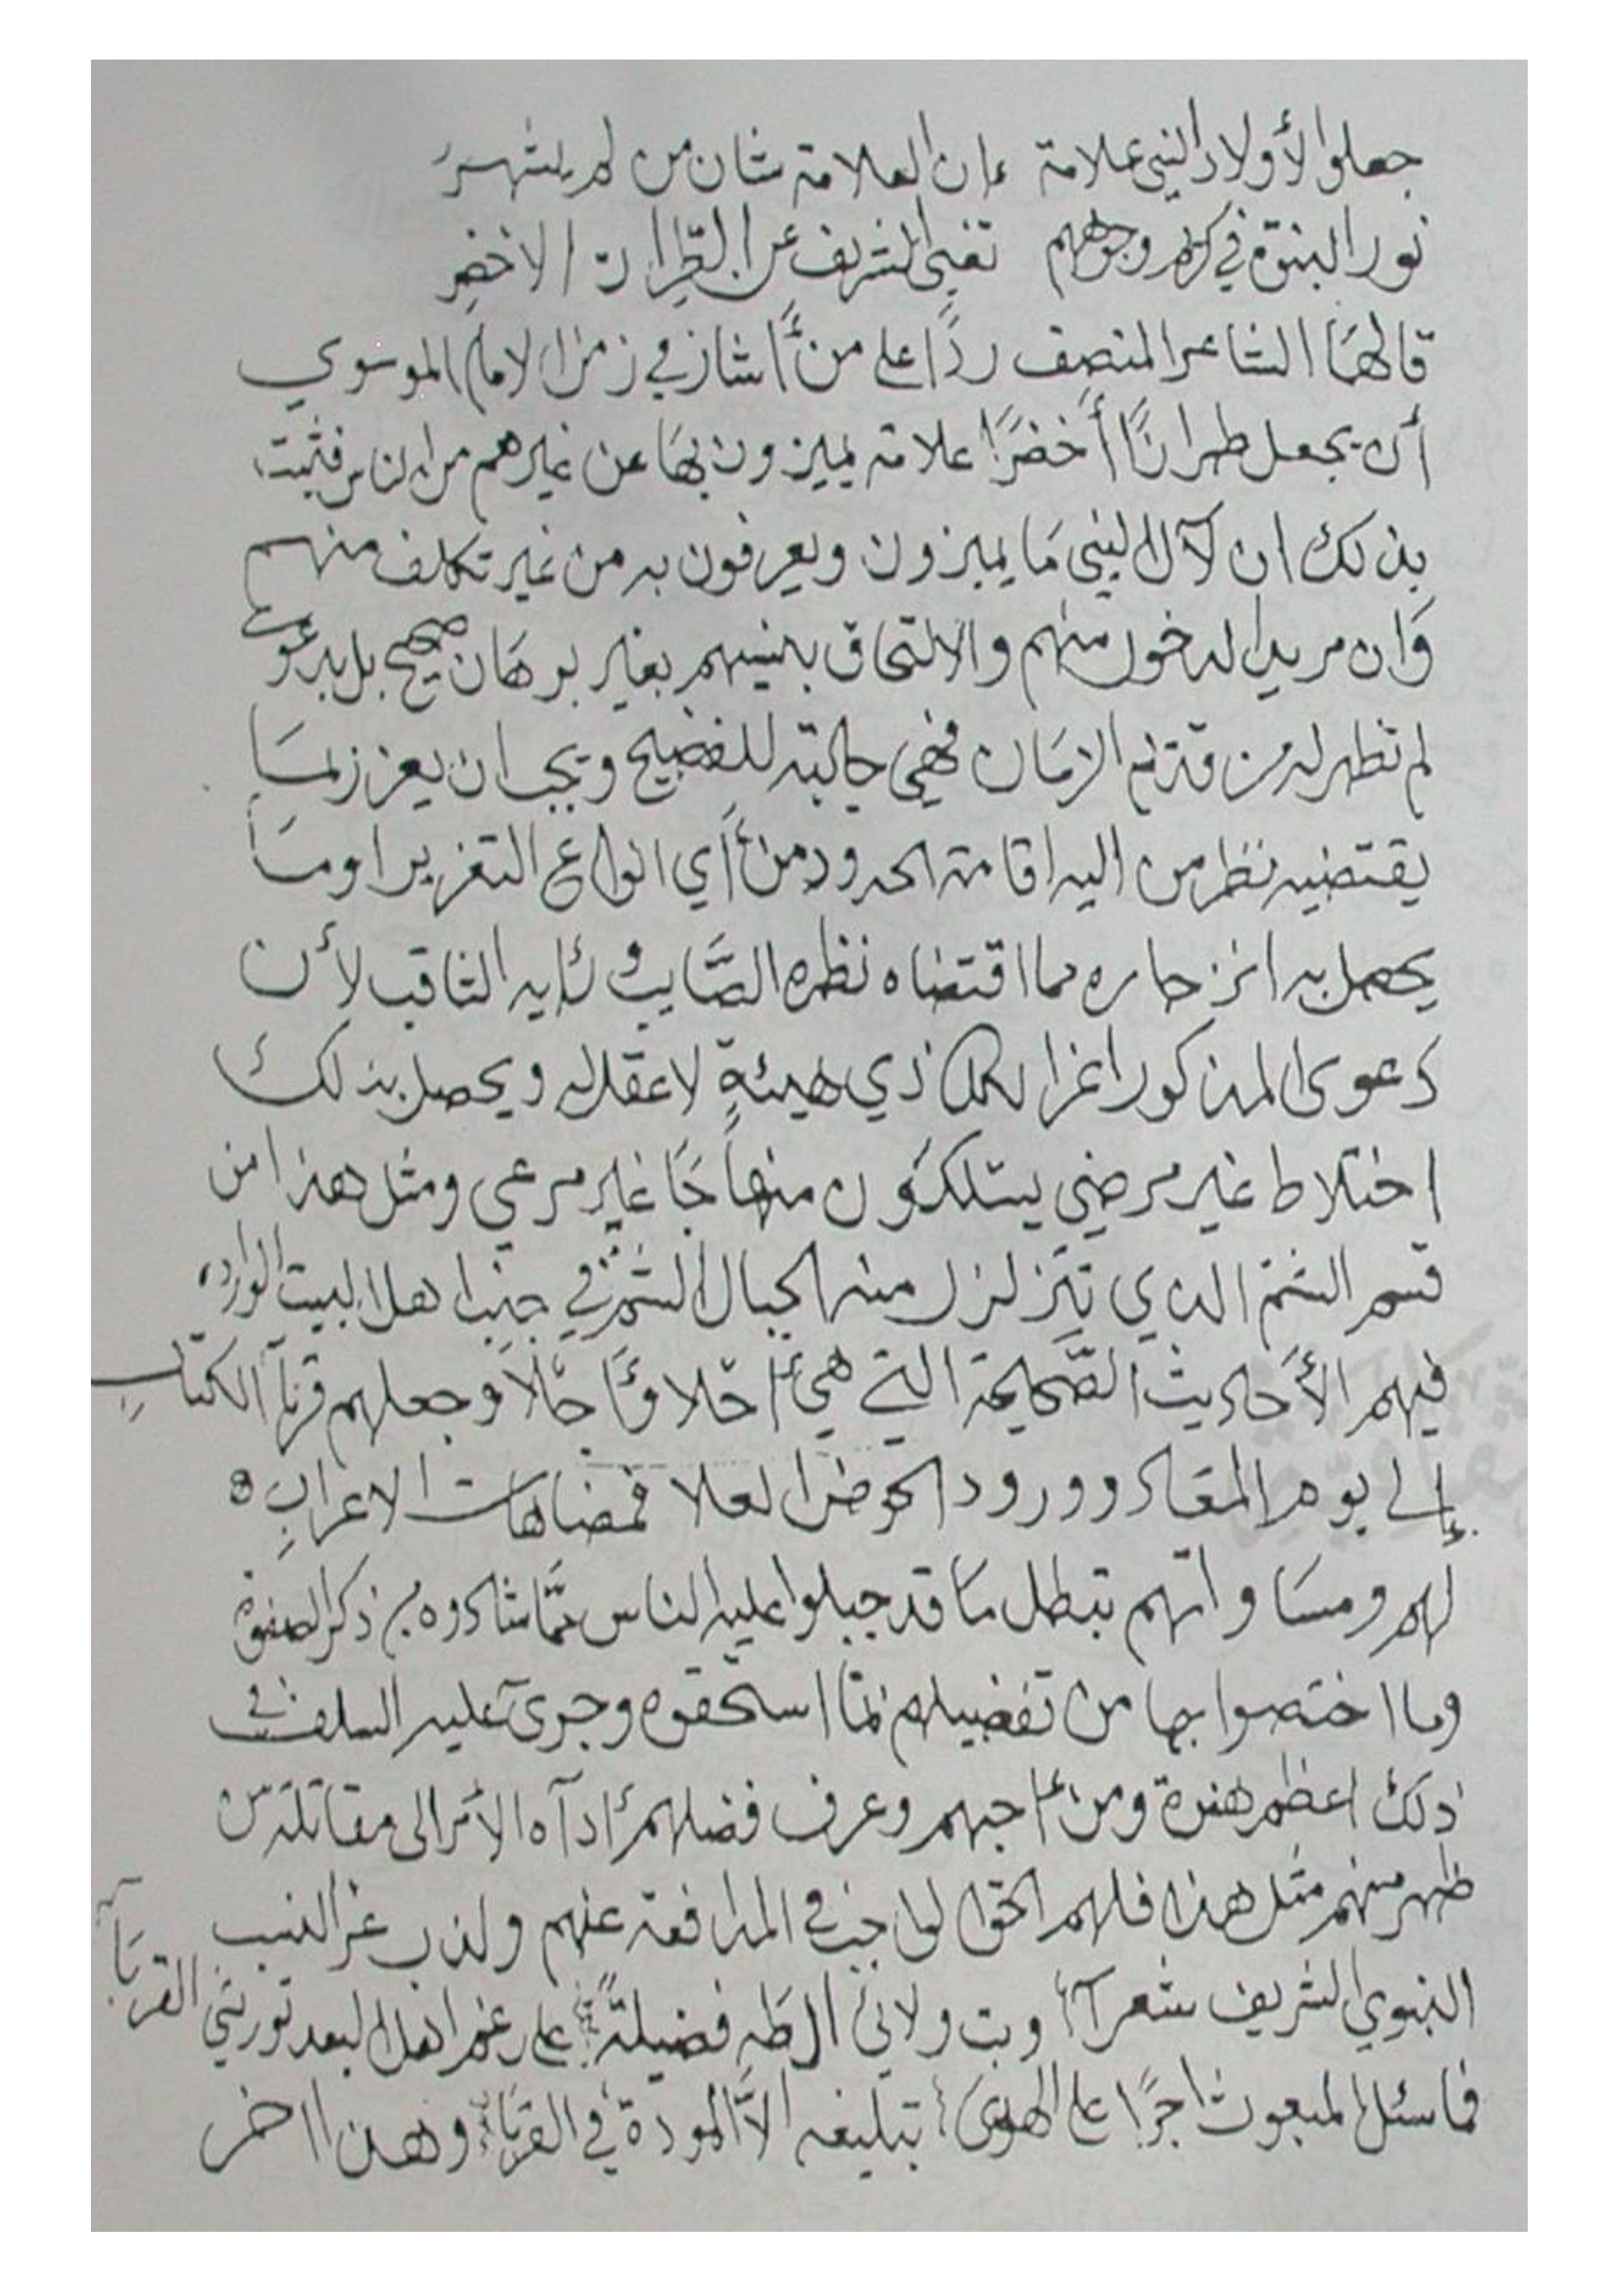 جعلوا لأولاد النبي علامة إن العلامة شان من لم يشهر
نور النبوة في كريم وجوههم تغني الشريف عن الطراز الاخضر
قالهما الشاعر المنصف ردًا على من أشار في زمن الامام الموسوي
أن يجعل طرازًا أخضرًا علامة يميزون بها عن غيرهم من الناس فثبت
بذلك ان لآل النبي ما يميزون ويعرفون به من غير تكلف منهم
وان مريد الدخول منهم والالتحاق بنسبهم بغير برهان صحيح بل بدعوى
لم تظهر له من قديم الزمان فهي جالبته للفضيح ويجب ان يعزر بما
يقتضيه نظر من اليه اقامة الحدود من أي انواع التعزير اوما
يحصل به انزجاره مما اقتضاه نظره الصَّايب و رأيه الثاقب لأن
دعوى المذكور اغرا لكل ذي هيئةٍ لا عقل له ويحصل بذلك
اختلاط غير مرضي يسلكون منهاجًا غير مرعي ومثل هذا من
قسم الشتم الذي تتزلزل منه الجبال الشم في جنب اهل البيت الوارد
فيهم الأحاديث الصَّحيحة التي هي وجعلهم قرنآ الكتاب
إلى يوم المعاد وورود الحوض العلا فمضاهات الاعراب
لهم ومساواتهم تبطل ما قد جبلوا عليه الناس ممَّا شادوه من ذكر الصفوة
وما اختصوا بها من تفضيلهم لما استحقوه وجرى عليه السلف في
ذلك اعظم ومن احبهم وعرف فضلهم أداه الأمر الى مقاتلة من
ظهر منهم مثل هذا فلهم الحق الواجب في المدافعة عنهم ولذب عن النسب
النبوي الشريف شعرآ وبت ولائي ال طه فضيلةً على رغم اهل البعد تورثني القربآ
فما سئل المبعوث اجرًا على الهدى تبليغه الاَّ المودة في القربا وهذا اخر